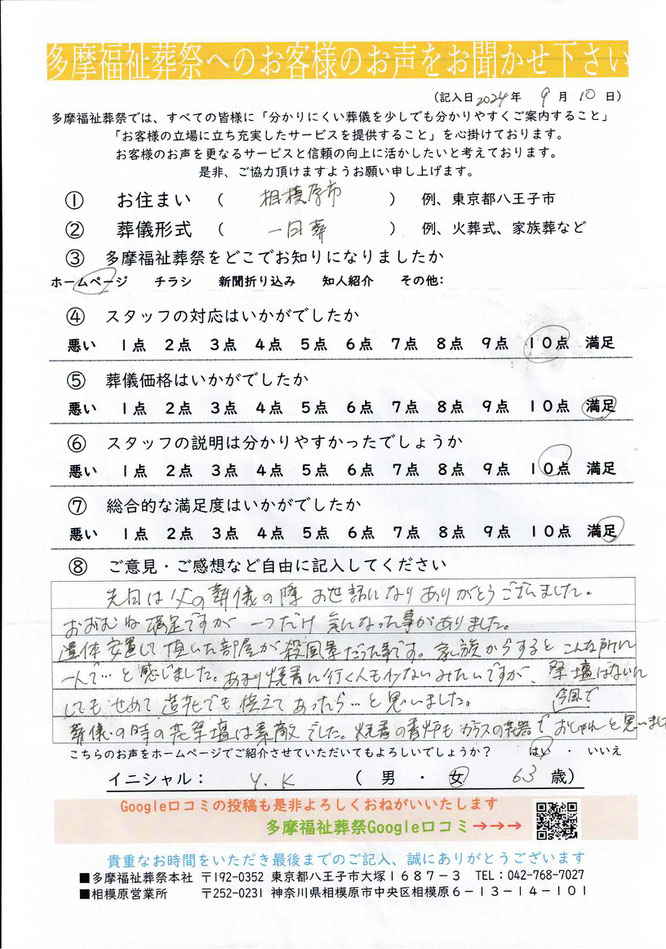 多摩福祉葬祭へのお客様のお声をお聞かせ下さい
(記入日2024年 9月10日)
多摩福祉葬祭では、すべての皆様に「分かりにくい葬儀を少しでも分かりやすくご案内すること」
「お客様の立場に立ち充実したサービスを提供すること」を心掛けております。
お客様のお声を更なるサービスと信頼の向上に活かしたいと考えております。
是非、ご協力頂けますようお願い申し上げます。
① お住まい ( 相模原市 ) 例、東京都八王子市
② 葬儀形式 ( 一日葬 ) 例、火葬式、家族葬など
③ 多摩福祉葬祭をどこでお知りになりましたか
ホームページ チラシ 新聞折り込み 知人紹介 その他:
④ スタッフの対応はいかがでしたか
悪い 1点 2点 3点 4点 5点 6点 7点 8点 9点 10点 満足
⑤ 葬儀価格はいかがでしたか
悪い 1点 2点 3点 4点 5点 6点 7点 8点 9点 10点 満足
⑥ スタッフの説明は分かりやすかったでしょうか
悪い 1点 2点 3点 4点 5点 6点 7点 8点 9点 10点 満足
⑦ 総合的な満足度はいかがでしたか
悪い 1点 2点 3点 4点 5点 6点 7点 8点 9点 10点 満足
⑧ ご意見・ご感想など自由に記入してください
先日は父の葬儀の際お世話になりありがとうございました。
おおむね満足ですが一つだけ気になった事がありました。
遺体安置して頂いた部屋が殺風景だった事です。家族からするとこんな所に
一人で…と感じました。あまり焼香に行く人もいないみたいですが、祭壇はないに
してもせめて造花でも備えてあったら…と思いました。
葬儀の時の花祭壇は素敵でした。焼香の香炉もガラスの花器でおしゃれと思いました
こちらのお声をホームページでご紹介させていただいてもよろしいでしょうか? はい ・ いいえ
イニシャル: Y.K ( 男 ・ 女 63 歳)
Google口コミの投稿も是非よろしくおねがいいたします
多摩福祉葬祭Google口コミ→→→
貴重なお時間をいただき最後までのご記入、誠にありがとうございます
■多摩福祉葬祭本社 〒192-0352 東京都八王子市大塚1687-3 TEL:042-768-7027
■相模原営業所 〒252-0231 神奈川県相模原市中央区相模原6-13-14-101